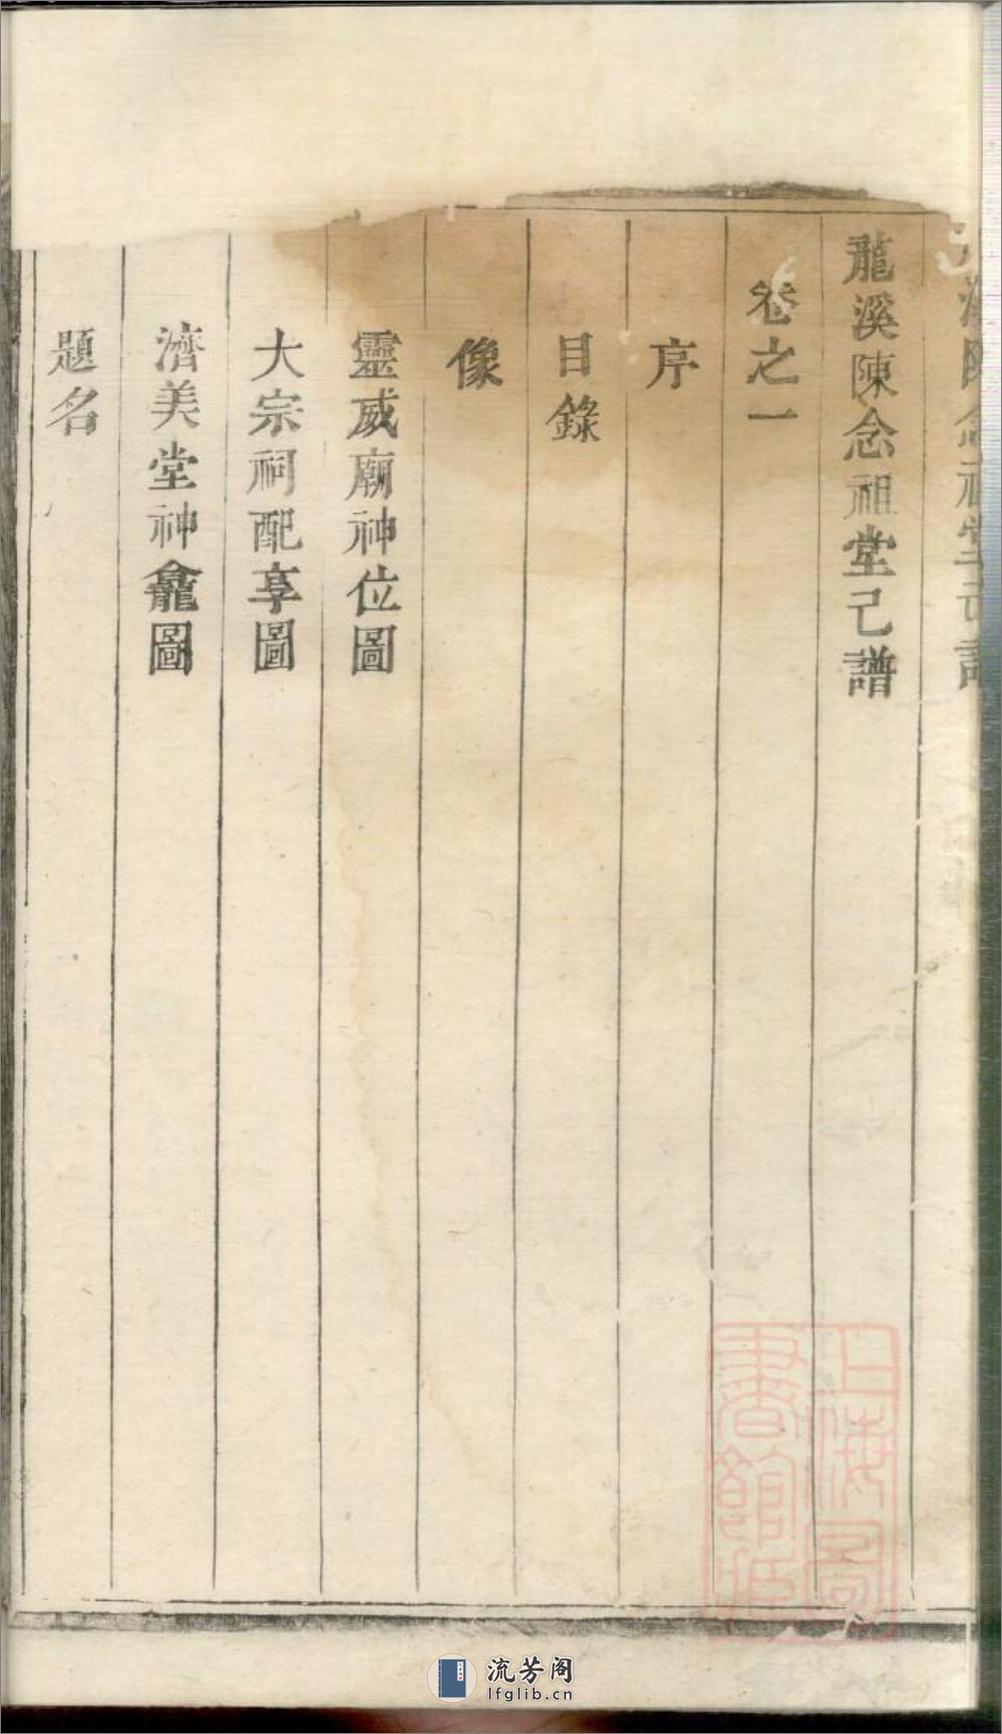 龍溪陳念祖堂己譜
卷之一
序
目錄
像
靈威廟神位圖
大宗祠配享圖
濟美堂神龕圖
題名
上海圖
書館藏
流芳阁
lfglib.cn